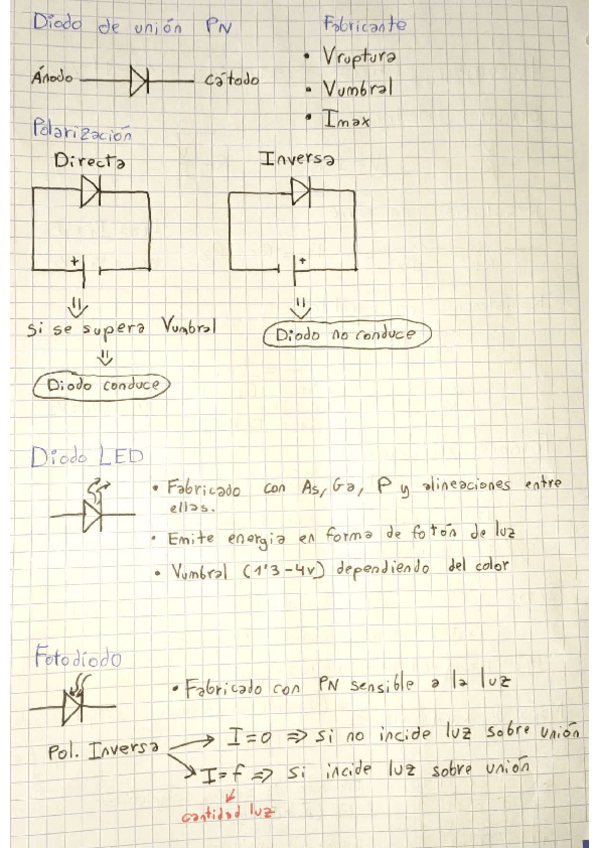 Diodo de unión PN
Ánodo
Cátodo
Fabricante
• Vruptura
• Vumbral
• Imax
Polarización
Directa
Inversa
+
+
si se supera Vumbral
Diodo no conduce
Diodo conduce
Diodo LED
• Fabricado con As, Ga, P y alineaciones entre
ellas.
• Emite energia en forma de fotón de luz
• Vumbral (1'3-4v) dependiendo del color
Fotodiodo
• Fabricado con PN sensible a la luz
Pol. Inversa
→ I=0 => si no incide luz sobre unión
→ I=f => si incide luz sobre unión
cantidad luz